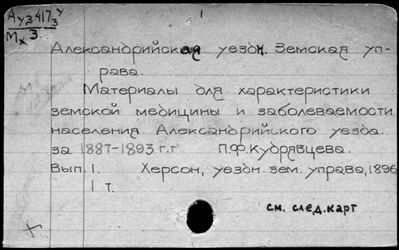 Ауз417з
Мх 3
1
Александрийская уездн. Земская уп-
рава.
Материалы для характеристики
земской медицины и заболеваемости
населения Александрийского уезда.
за 1887-1893 г.г. П.Ф.Кудрявцева.
Вып. 1. Херсон, уездн. зем. управа, 1896
1 т.
см. след.карт